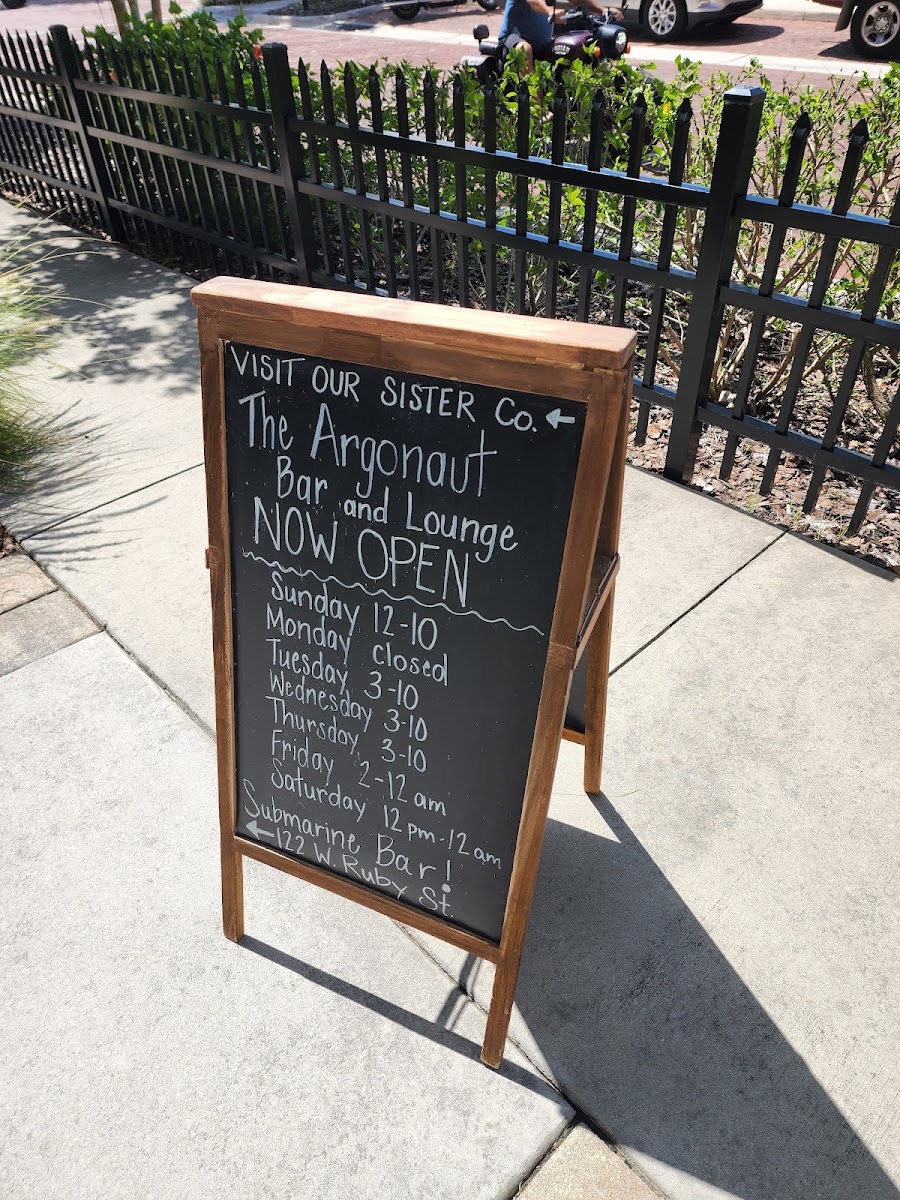 VISIT OUR SISTER Co. ←
The Argonaut
Bar and Lounge
NOW OPEN
Sunday 12-10
Monday closed
Tuesday 3-10
Wednesday 3-10
Thursday 3-10
Friday 2-12 am
Saturday 12 pm-12 am
Submarine Bar!
← 122 W. Ruby St.